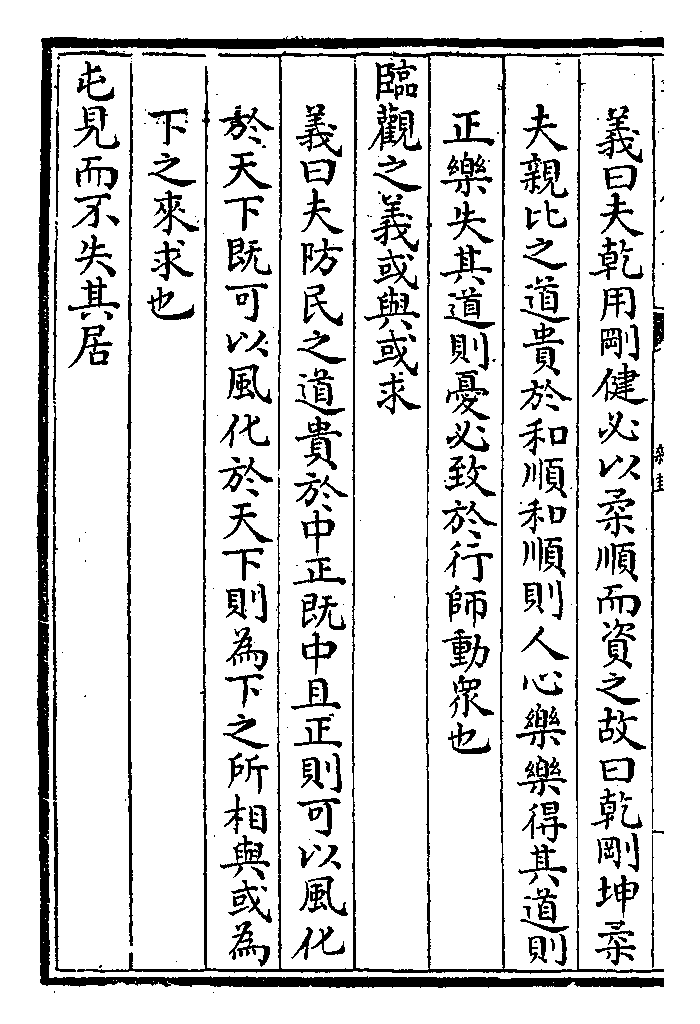 義曰夫乾用剛健必以柔順而資之故曰乾剛坤柔
夫親比之道貴於和順和順則人心樂樂得其道則
正樂失其道則憂必致於行師動衆也
臨觀之義或與或求
義曰夫防民之道貴於中正既中且正則可以風化
於天下既可以風化於天下則為下之所相與或為
下之來求也
屯見而不失其居